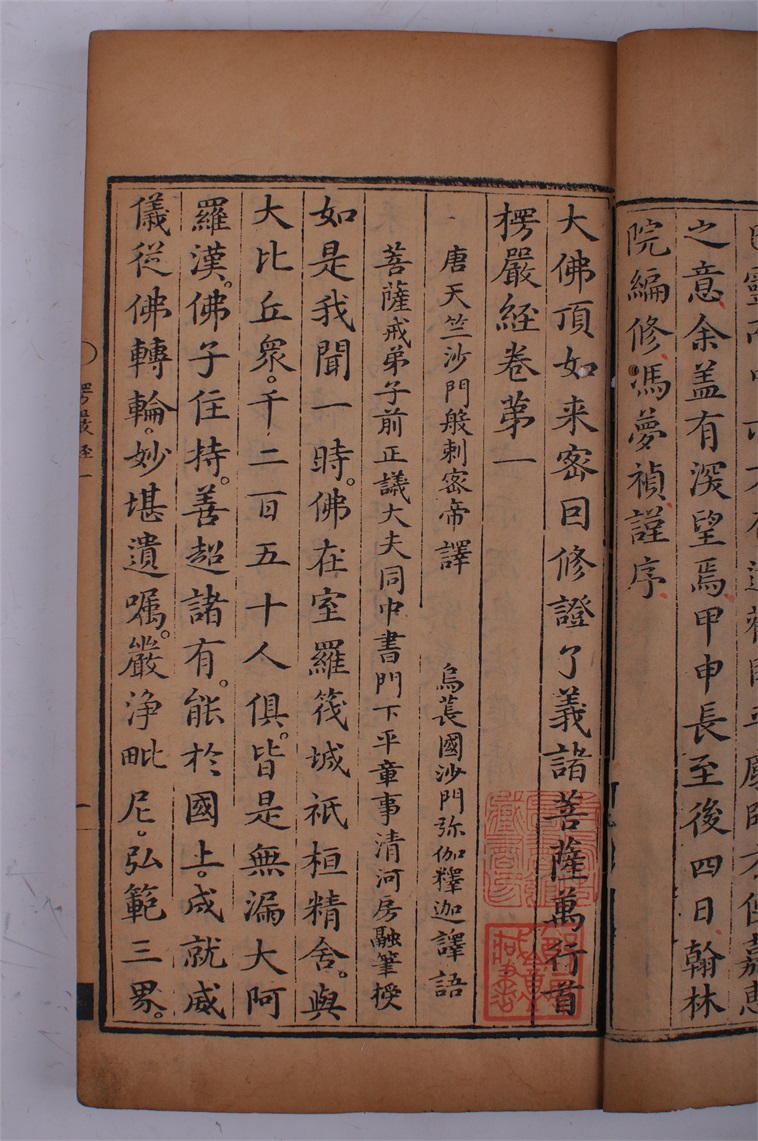 之意余盖有深望焉甲申長至後四日翰林
院編修馮夢禎謹序
大佛頂如来宻因修證了義諸菩薩萬行首
楞嚴經卷苐一
唐天竺沙門般剌宻帝譯　烏萇國沙門弥伽釋迦譯語
菩薩戒弟子前正議大夫同中書門下平章事清河房融筆授
如是我聞一時。佛在室羅筏城祇桓精舍。與
大比丘衆。千二百五十人俱。皆是無漏大阿
羅漢。佛子住持。善超諸有。能扵國土。成就威
儀從佛轉輪。妙堪遺嘱。嚴淨毗尼。弘範三界。
楞嚴經一